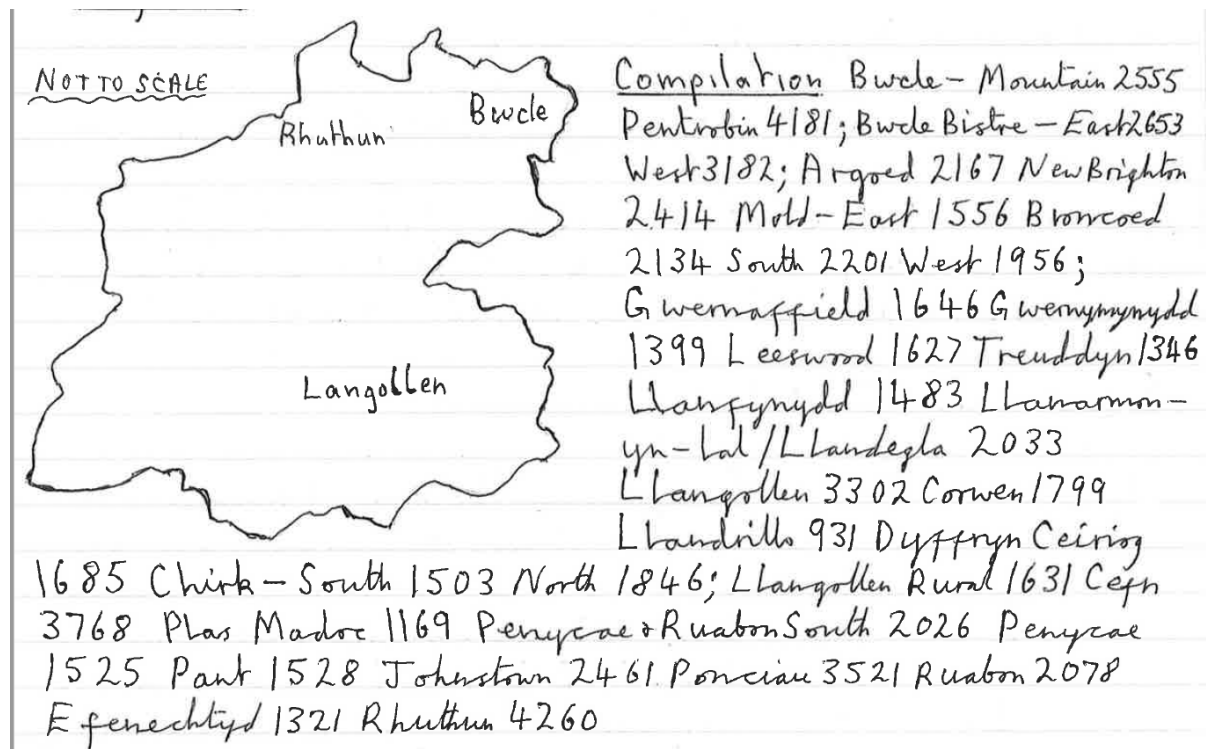 NOT TO SCALE
Rhuthun
Bwcle
Langollen
Compilation Bwcle - Mountain 2555
Pentrobin 4181; Bwcle Bistre - East 2653
West 3182; Argoed 2167 New Brighton
2414 Mold - East 1556 Broncoed
2134 South 2201 West 1956;
Gwernaffield 1646 Gwernymynydd
1399 Leeswood 1627 Treuddyn 1346
Llanfynydd 1483 Llanarmon-
yn-Lal/Llandegla 2033
Llangollen 3302 Corwen 1799
Llandrillo 931 Dyffryn Ceiriog
1685 Chirk - South 1503 North 1846; Llangollen Rural 1631 Cefn
3768 Plas Madoc 1169 Penycae & Ruabon South 2026 Penycae
1525 Pant 1528 Johnstown 2461 Ponciau 3521 Ruabon 2078
Efenechtyd 1321 Rhuthun 4260